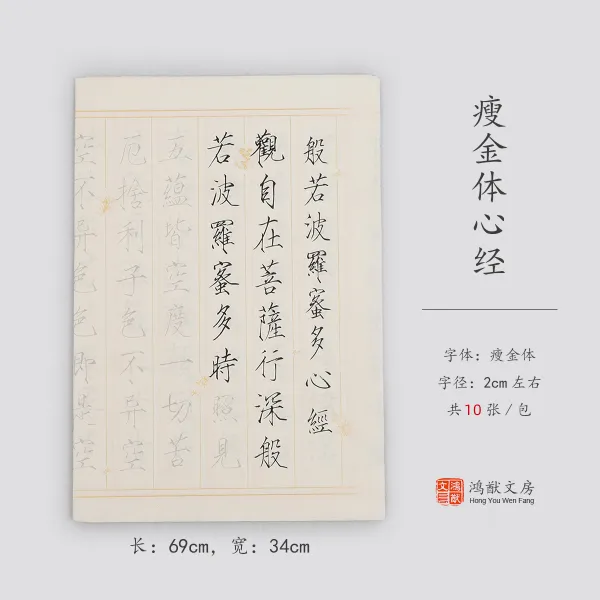 般若波羅蜜多心經
觀自在菩薩行深般
若波羅蜜多時照見
五蘊皆空度一切苦
厄捨利子色不異空
空不異色色即是空
瘦金体心经
字体：瘦金体
字径：2cm左右
共10张/包
鸿猷文房
Hong You Wen Fang
长：69cm，宽：34cm